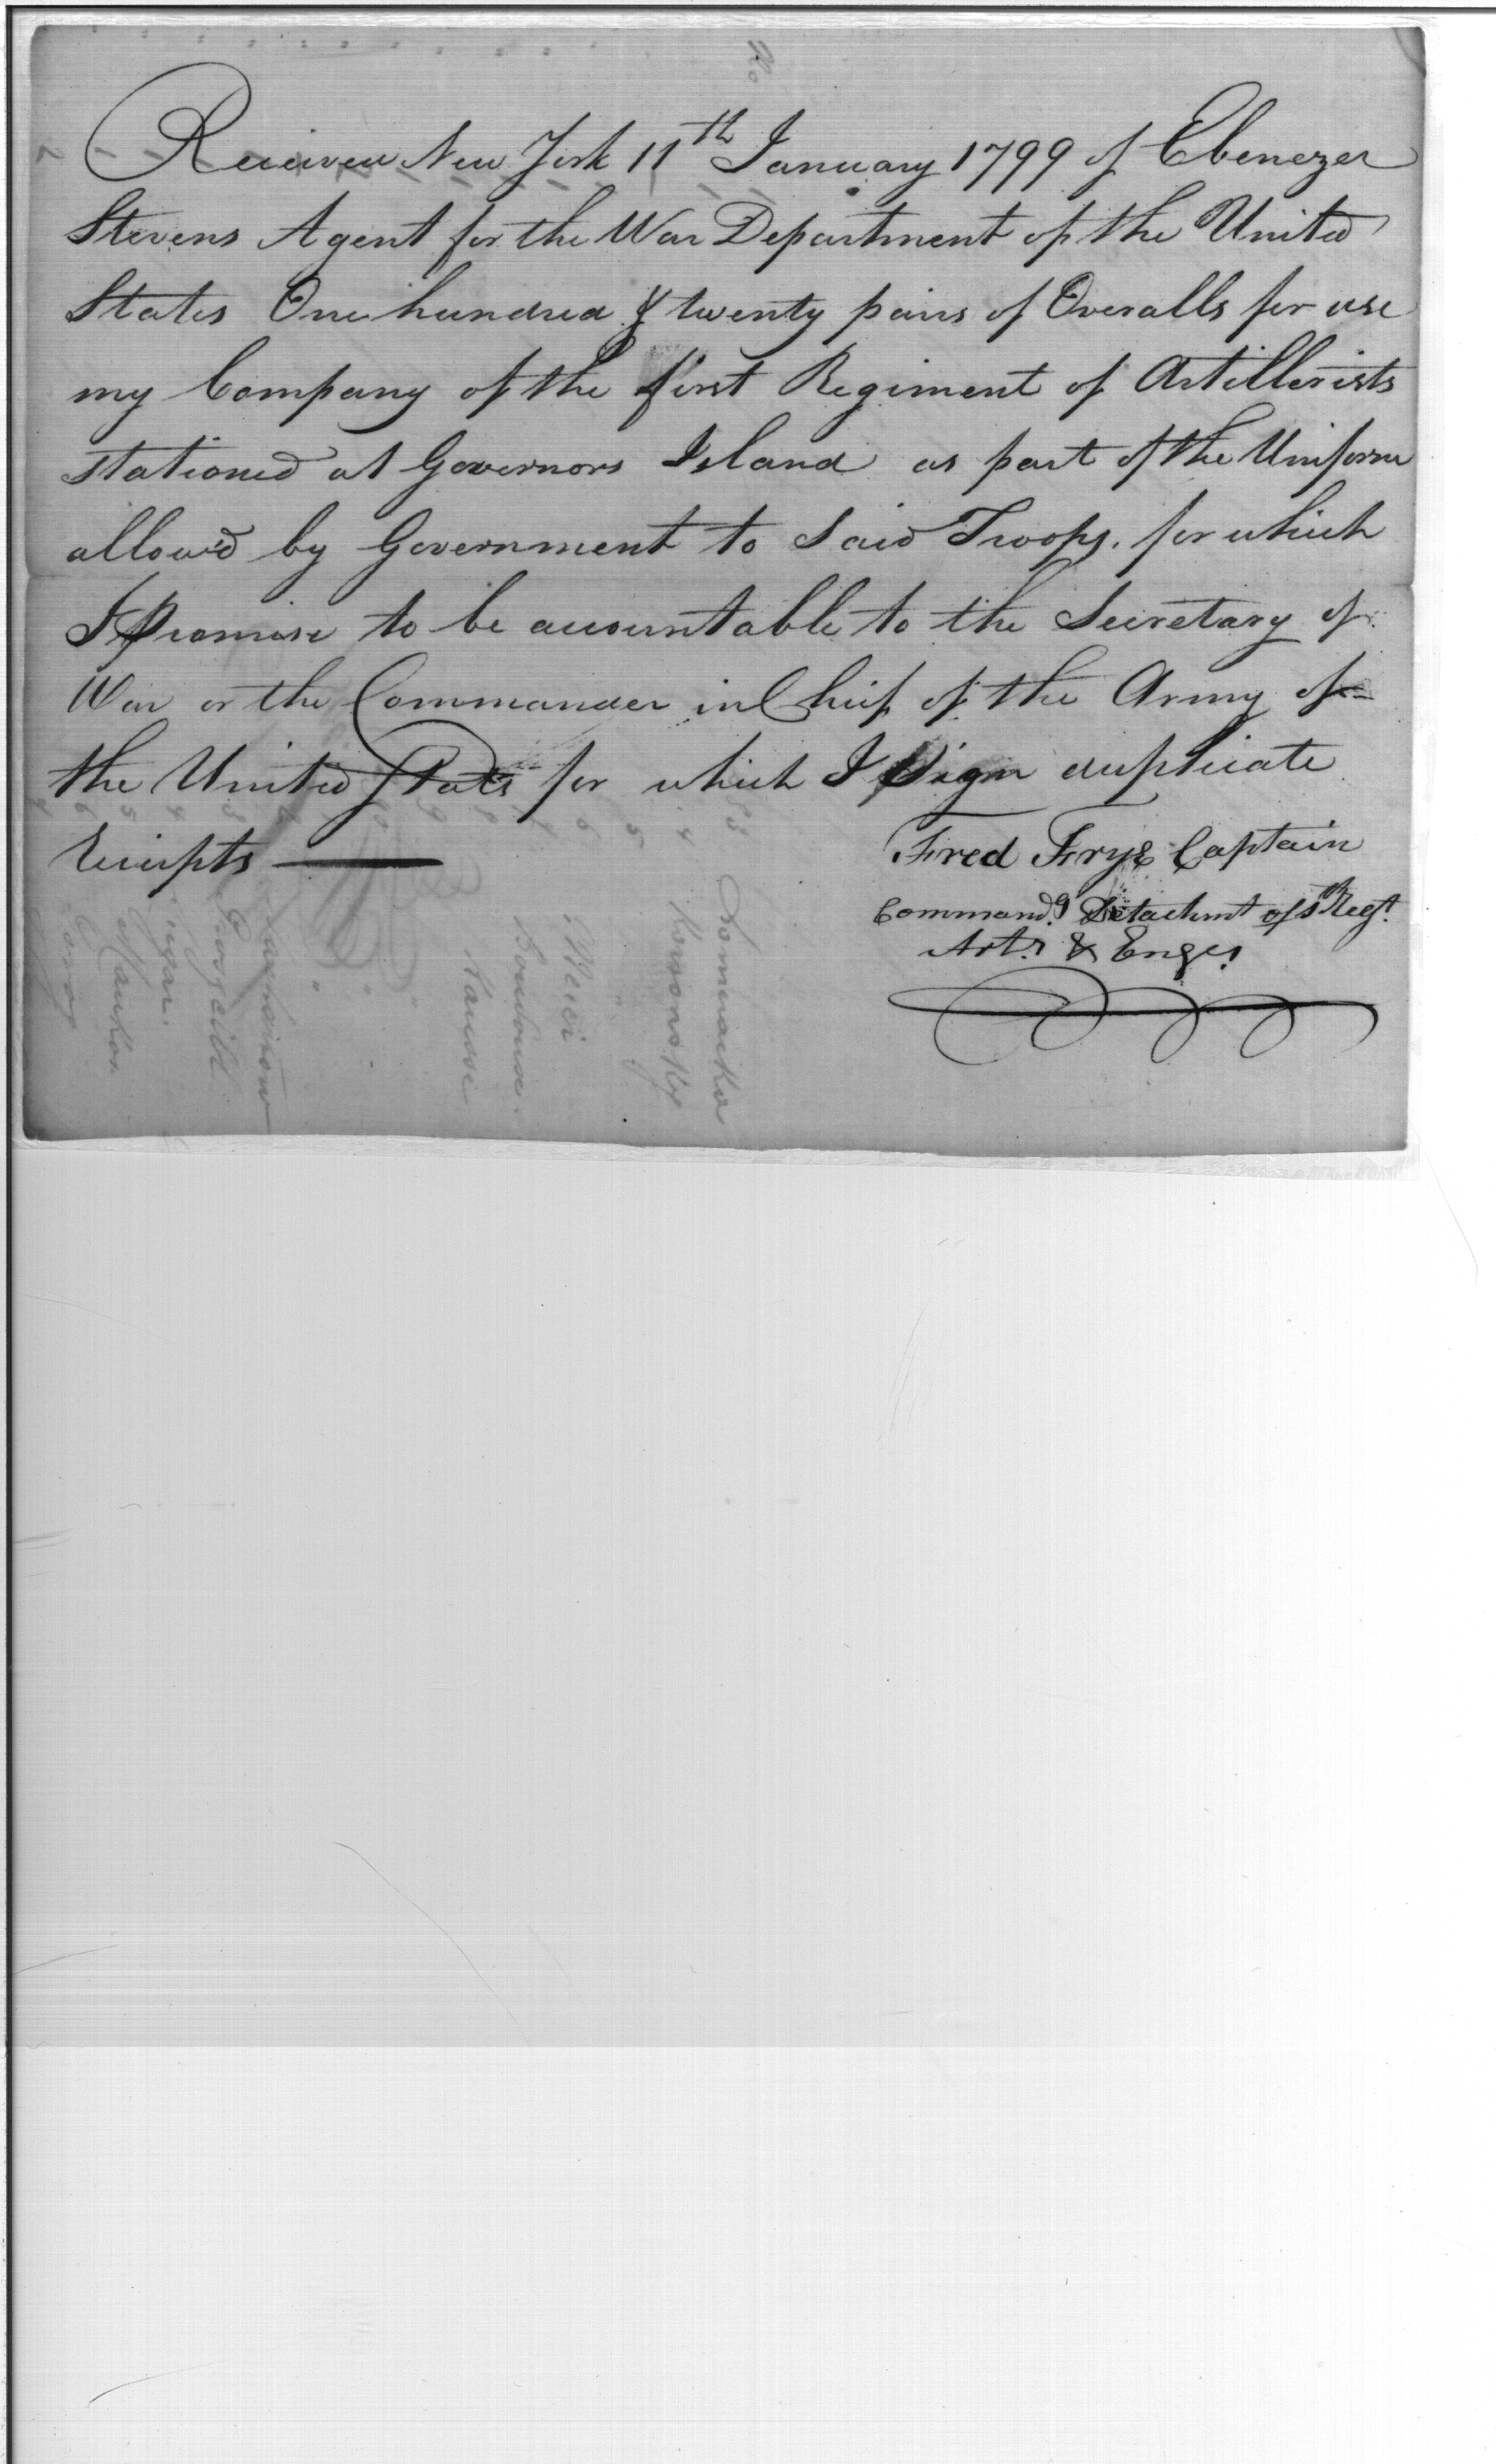 Received New York 11th January 1799 of Ebenezer
Stevens Agent for the War Department of the United
States One hundred & twenty pairs of Overalls for use
my Company of the first Regiment of Artillerists
stationed at Governors Island as part of the Uniform
allow'd by Government to Said Troops. for which
I promise to be accountable to the Secretary of
War or the Commander in Chief of the Army of
the United States for which I Sign duplicate
Reciepts
Fred Frye Captain
Commandg Detachmt of 1st Regt.
Art.s & Engrs